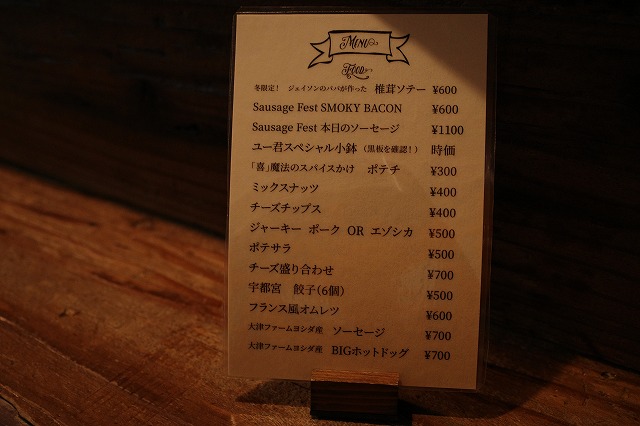 MENU
FOOD
冬限定! ジェイソンのパパが作った 椎茸ソテー ¥600
Sausage Fest SMOKY BACON ¥600
Sausage Fest 本日のソーセージ ¥1100
ユー君スペシャル小鉢 (黒板を確認!) 時価
「喜」魔法のスパイスかけ ポテチ ¥300
ミックスナッツ ¥400
チーズチップス ¥400
ジャーキー ポーク OR エゾシカ ¥500
ポテサラ ¥500
チーズ盛り合わせ ¥700
宇都宮 餃子(6個) ¥500
フランス風オムレツ ¥600
大津ファームヨシダ産 ソーセージ ¥700
大津ファームヨシダ産 BIGホットドッグ ¥700